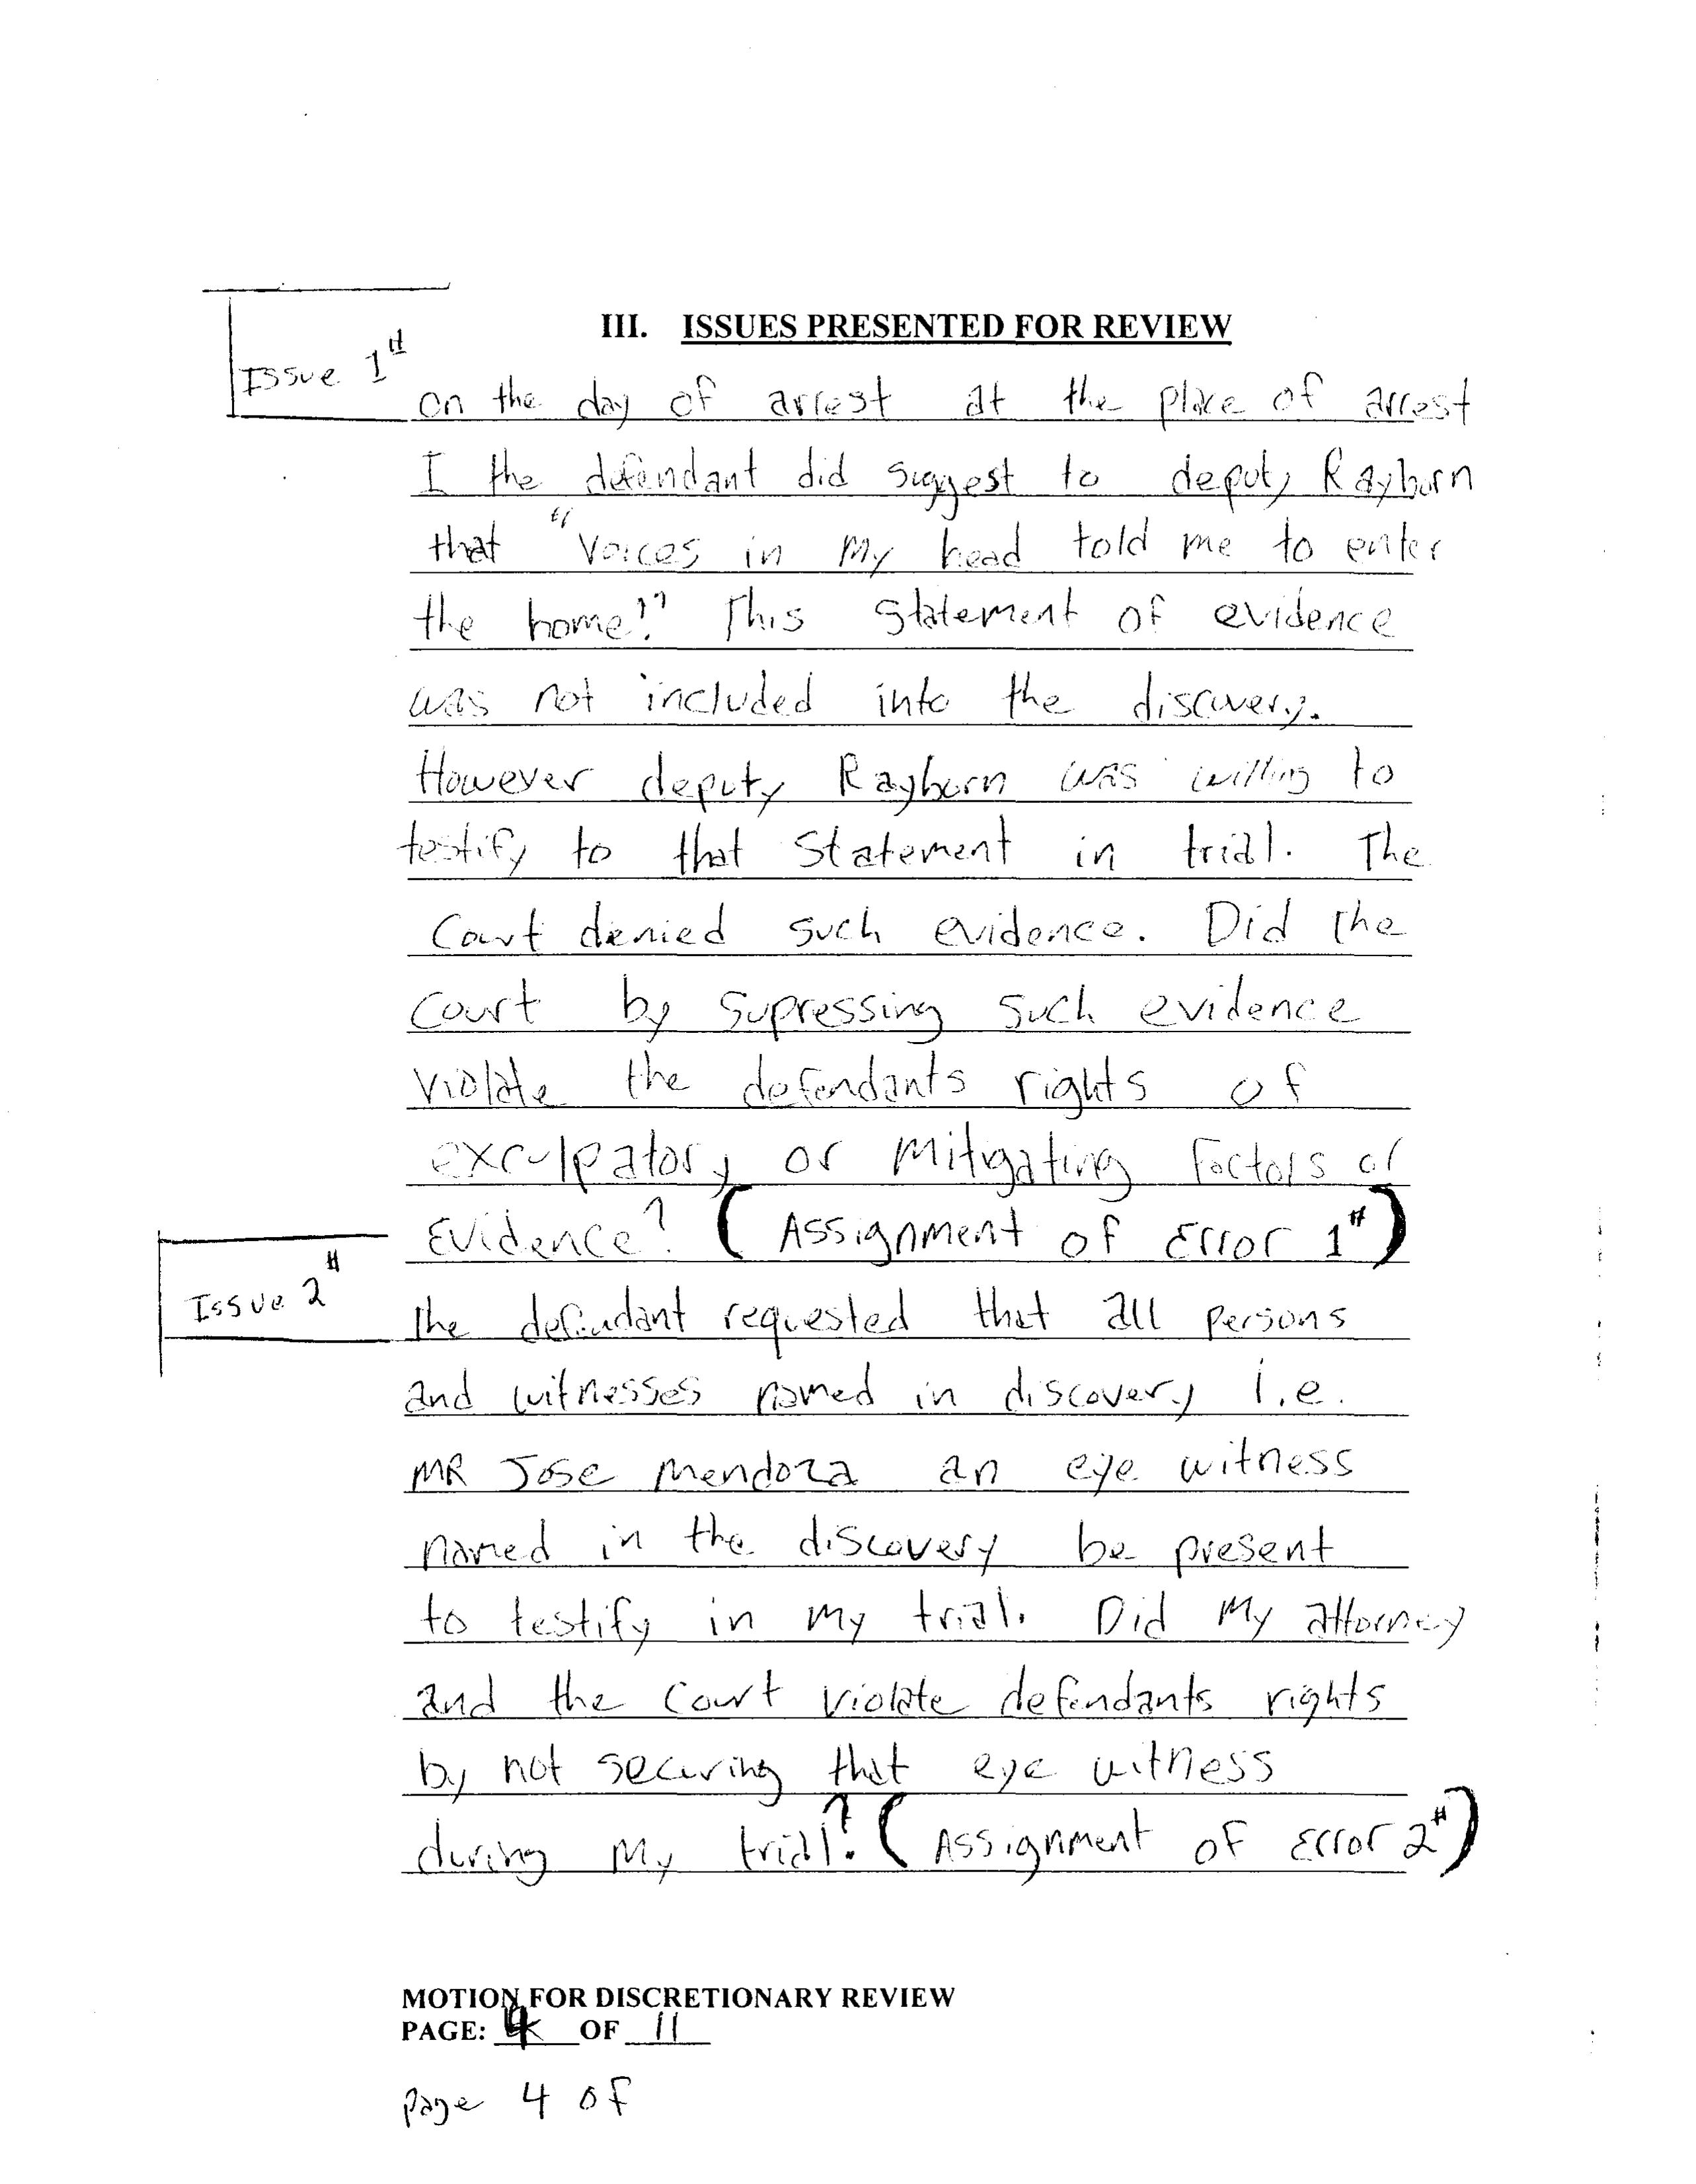 III. ISSUES PRESENTED FOR REVIEW
Issue 1#
on the day of arrest at the place of arrest
I the defendant did suggest to deputy Rayburn
that "Voices in my head told me to enter
the home!" This statement of evidence
was not included into the discovery.
However deputy Rayburn was willing to
testify to that statement in trial. The
Court denied such evidence. Did the
Court by supressing such evidence
violate the defendants rights of
exculpatory or mitigating factors of
Evidence? (Assignment of Error 1#)
Issue 2#
The defendant requested that all persons
and witnesses named in discovery i.e.
MR Jose Mendoza an eye witness
named in the discovery be present
to testify in my trial. Did my attorney
and the Court violate defendants rights
by not securing that eye witness
during my trial? (Assignment of Error 2#)
MOTION FOR DISCRETIONARY REVIEW
PAGE: 4 OF 11
page 4 of